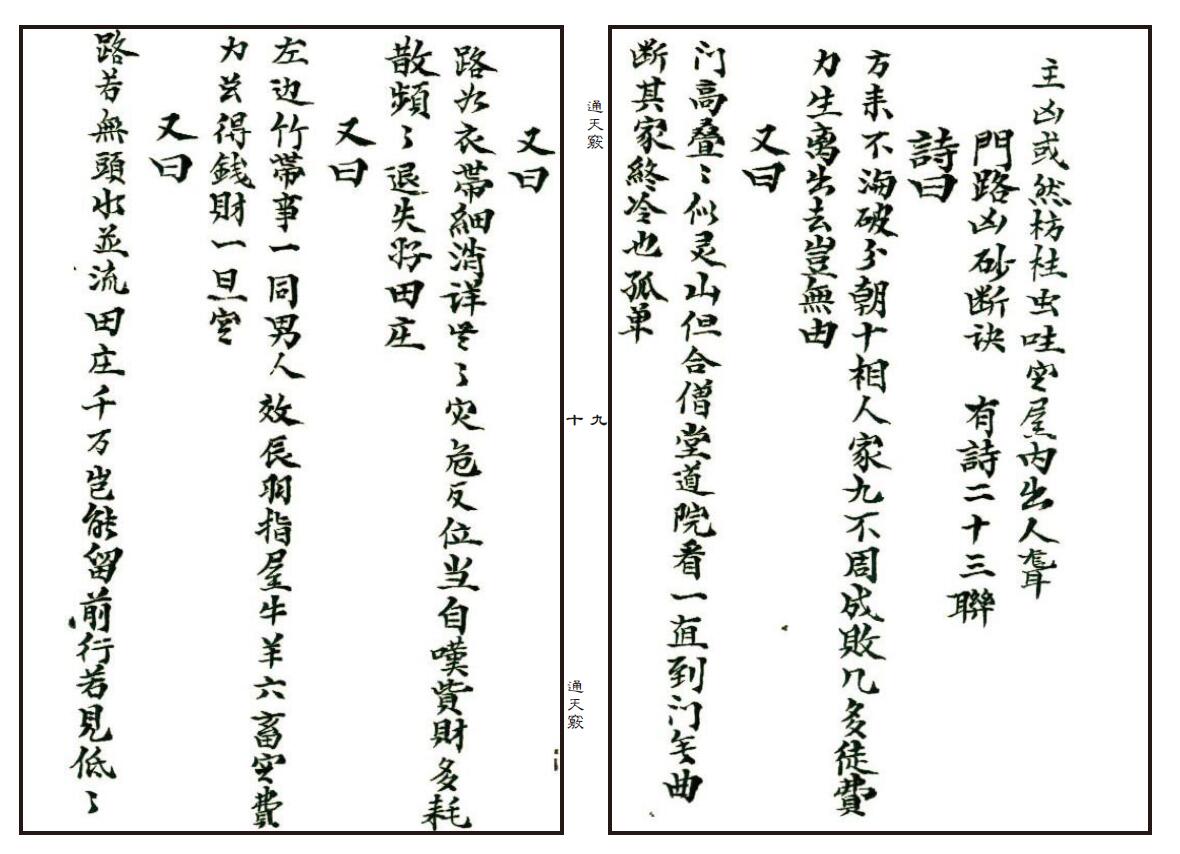 主凶或然枋柱虫吐空屋内出人聾
門路凶砂断诀 有詩二十三聯
詩曰
方来不海破分朝十相人家九不周成敗几多徒費
力生离出去豈無由
又曰
门高叠〻似灵山但合僧堂道院看一直到门无曲
断其家終冷也孤单
通天竅
十九
通天竅
又曰
路如衣帯細消详〻灾危反位当自嘆貲財多耗
散頻〻退失好田庄
又曰
左边竹帯事一同男人效辰羽指屋牛羊六畜空費
力若得錢財一旦空
又曰
路若無頭水並流田庄千万岂能留前行若見低〻